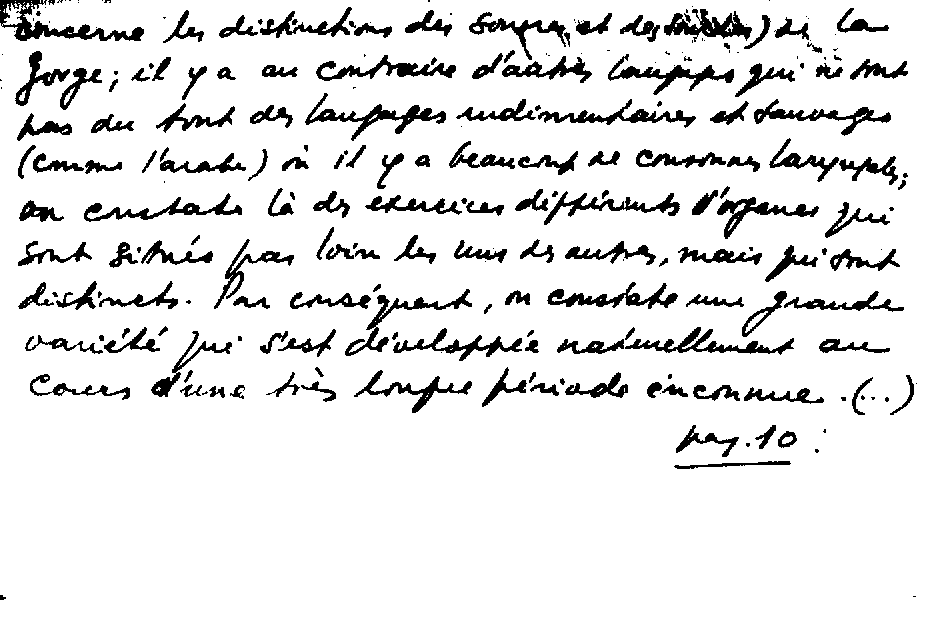 concerne les distinctions des sources et des ) de la
gorge; il y a au contraire d'autres langages qui ne sont
pas du tout des langages rudimentaires et sauvages
(comme l'arabe) où il y a beaucoup de consonnes laryngales;
on constate là des exercices différents d'organes qui
sont situés pas loin les uns des autres, mais qui sont
distincts. Par conséquent, on constate une grande
variété qui s'est développée naturellement au
cours d'une très longue période inconnue. (...)
pag. 10 :